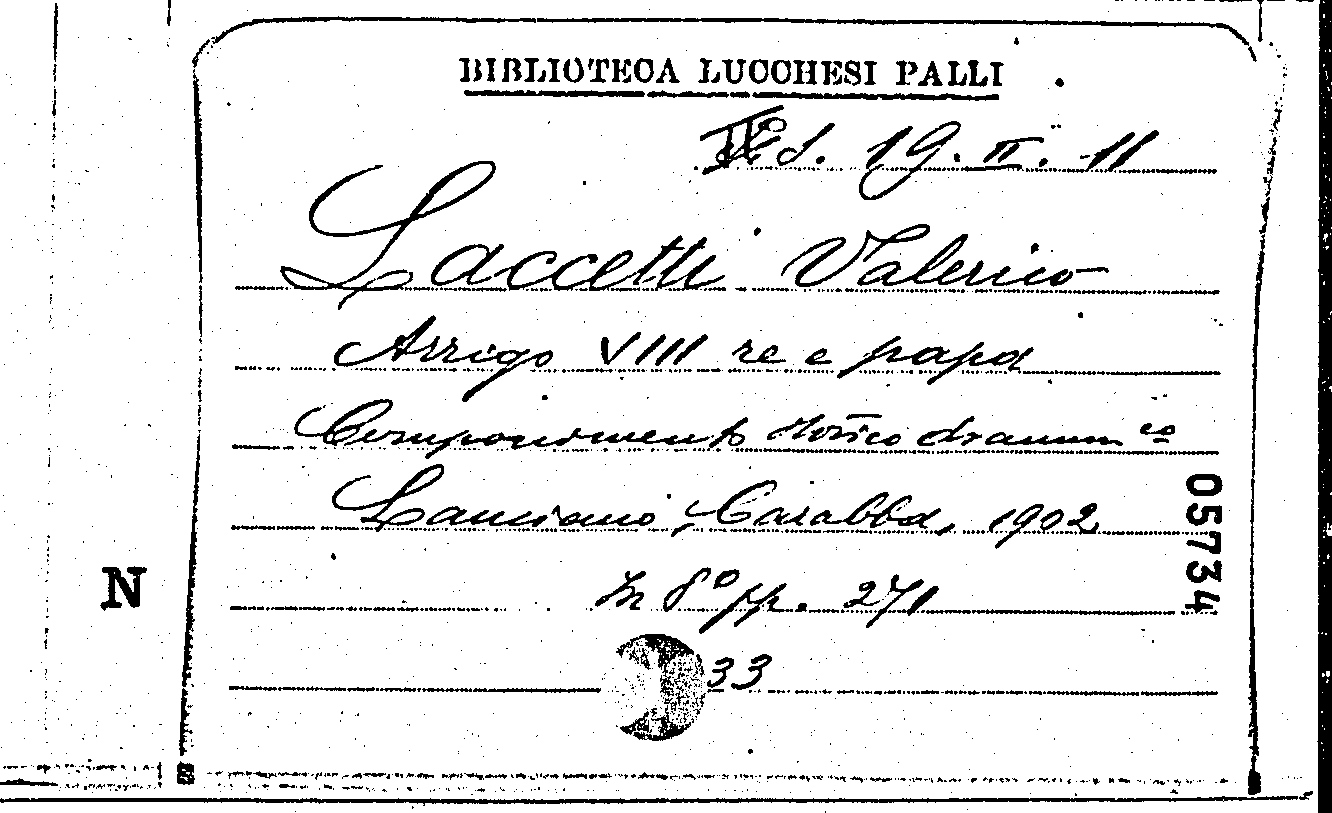 BIBLIOTECA LUCCHESI PALLI
S. 19. II. 11
Laccetti Valerico
Arrigo VIII re e papa
Componimento storico dramm co
Lanciano, Carabba, 1902
05734
In 8º pp. 271
N
33